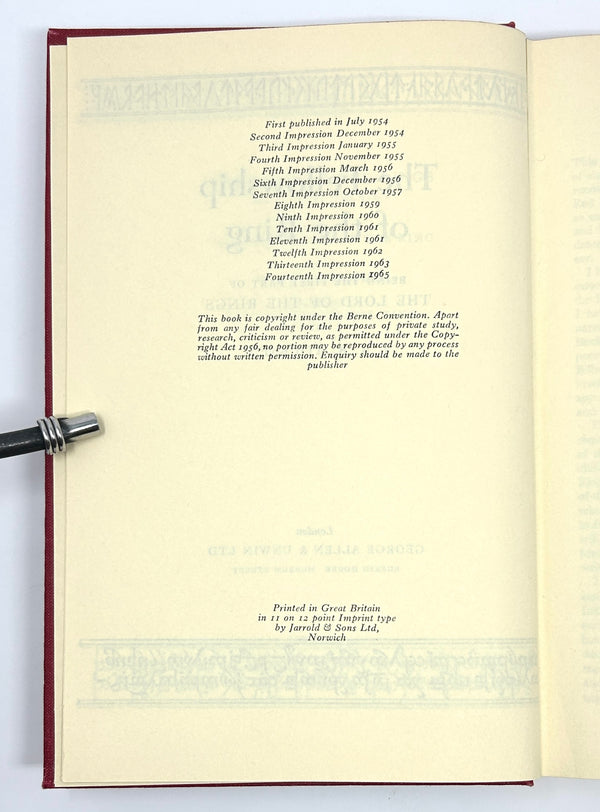 First published in July 1954
Second Impression December 1954
Third Impression January 1955
Fourth Impression November 1955
Fifth Impression March 1956
Sixth Impression December 1956
Seventh Impression October 1957
Eighth Impression 1959
Ninth Impression 1960
Tenth Impression 1961
Eleventh Impression 1961
Twelfth Impression 1962
Thirteenth Impression 1963
Fourteenth Impression 1965
This book is copyright under the Berne Convention. Apart
from any fair dealing for the purposes of private study,
research, criticism or review, as permitted under the Copy-
right Act 1956, no portion may be reproduced by any process
without written permission. Enquiry should be made to the
publisher
Printed in Great Britain
in 11 on 12 point Imprint type
by Jarrold & Sons Ltd,
Norwich